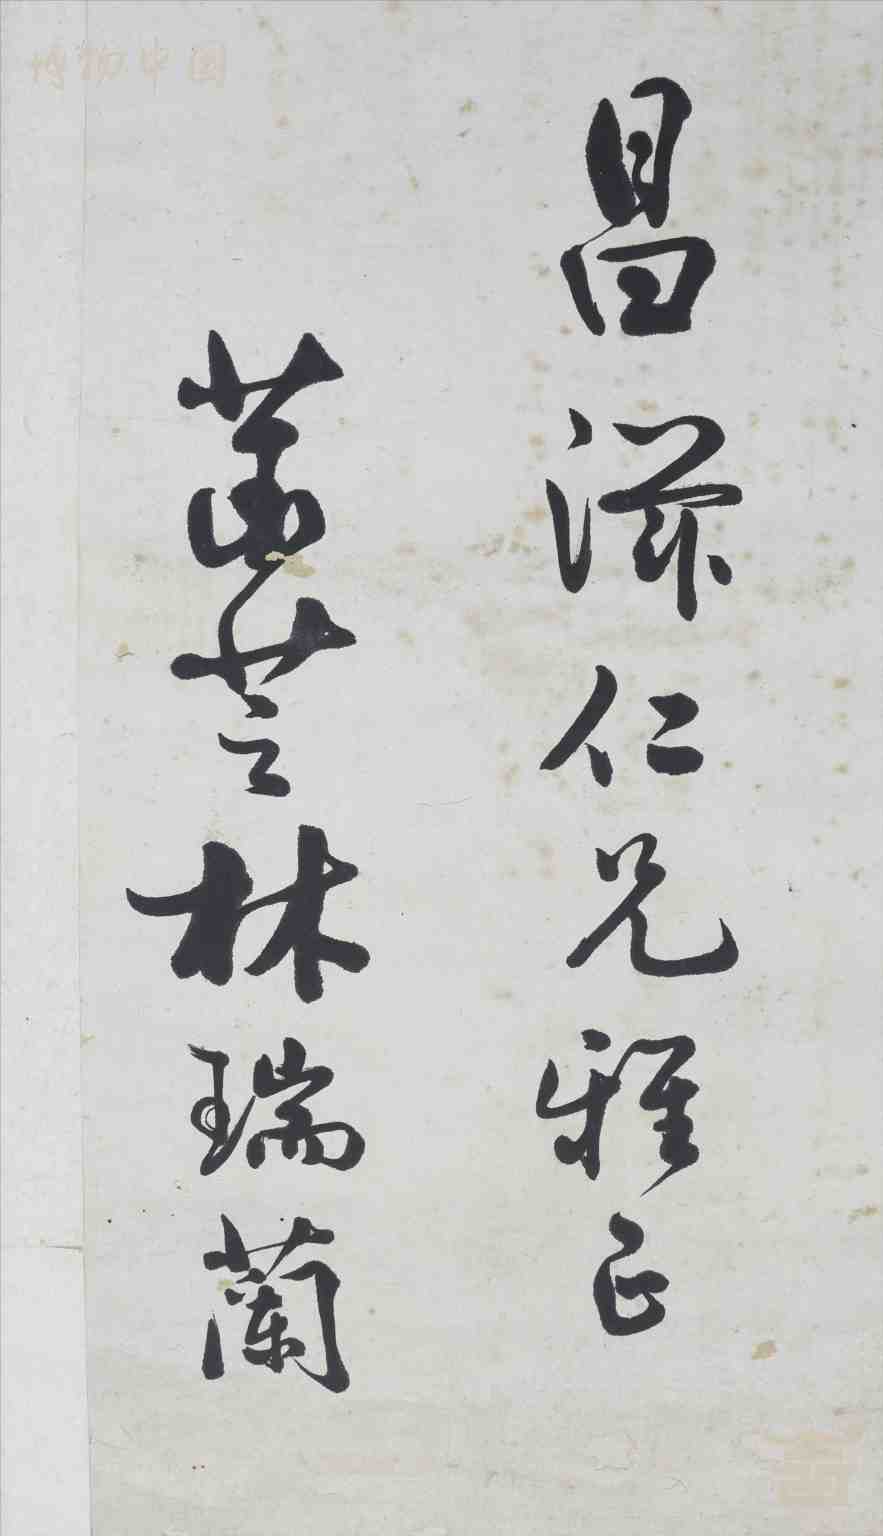 博物中国
昌滋仁兄雅正
菡林瑞蘭